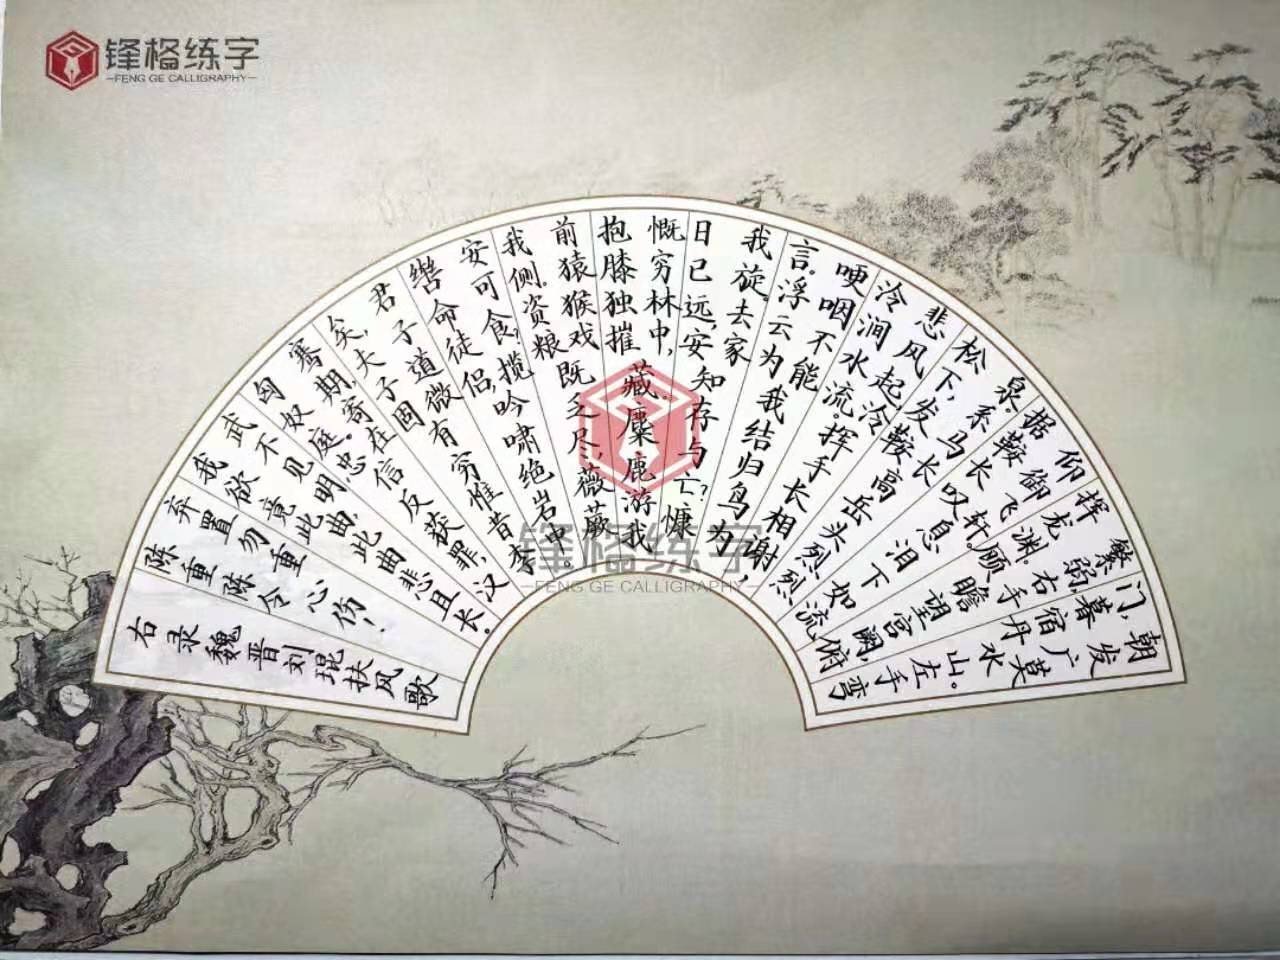 锋格练字
FENG GE CALLIGRAPHY
朝发广莫
门，暮宿丹水山。左手弯
繁弱，右手
挥龙渊。顾瞻望宫阙，俯
仰御飞轩。
据鞍长叹息泪下如流
泉。系马长
松下，发鞍高岳头烈烈
悲风起泠
泠涧水流。挥手长相谢，
哽咽不能
言。浮云为我结归鸟为
我旋。去家
日已远，安知存与亡？慷
慨穷林中，
抱膝独摧藏。麋鹿游我
前猿猴戏
我侧。资粮既乏尽，薇蕨
安可食，揽
辔命徒侣，吟啸绝岩中。
君子道微
矣，夫子固有穷惟昔李
骞期，寄在
匈奴庭。忠信反获罪，汉
武不见明
我欲竟此曲，此曲悲且长。
弃置勿重
陈重陈令心伤！
右录魏晋刘琨扶风歌
锋格练字
FENG GE CALLIGRAPHY